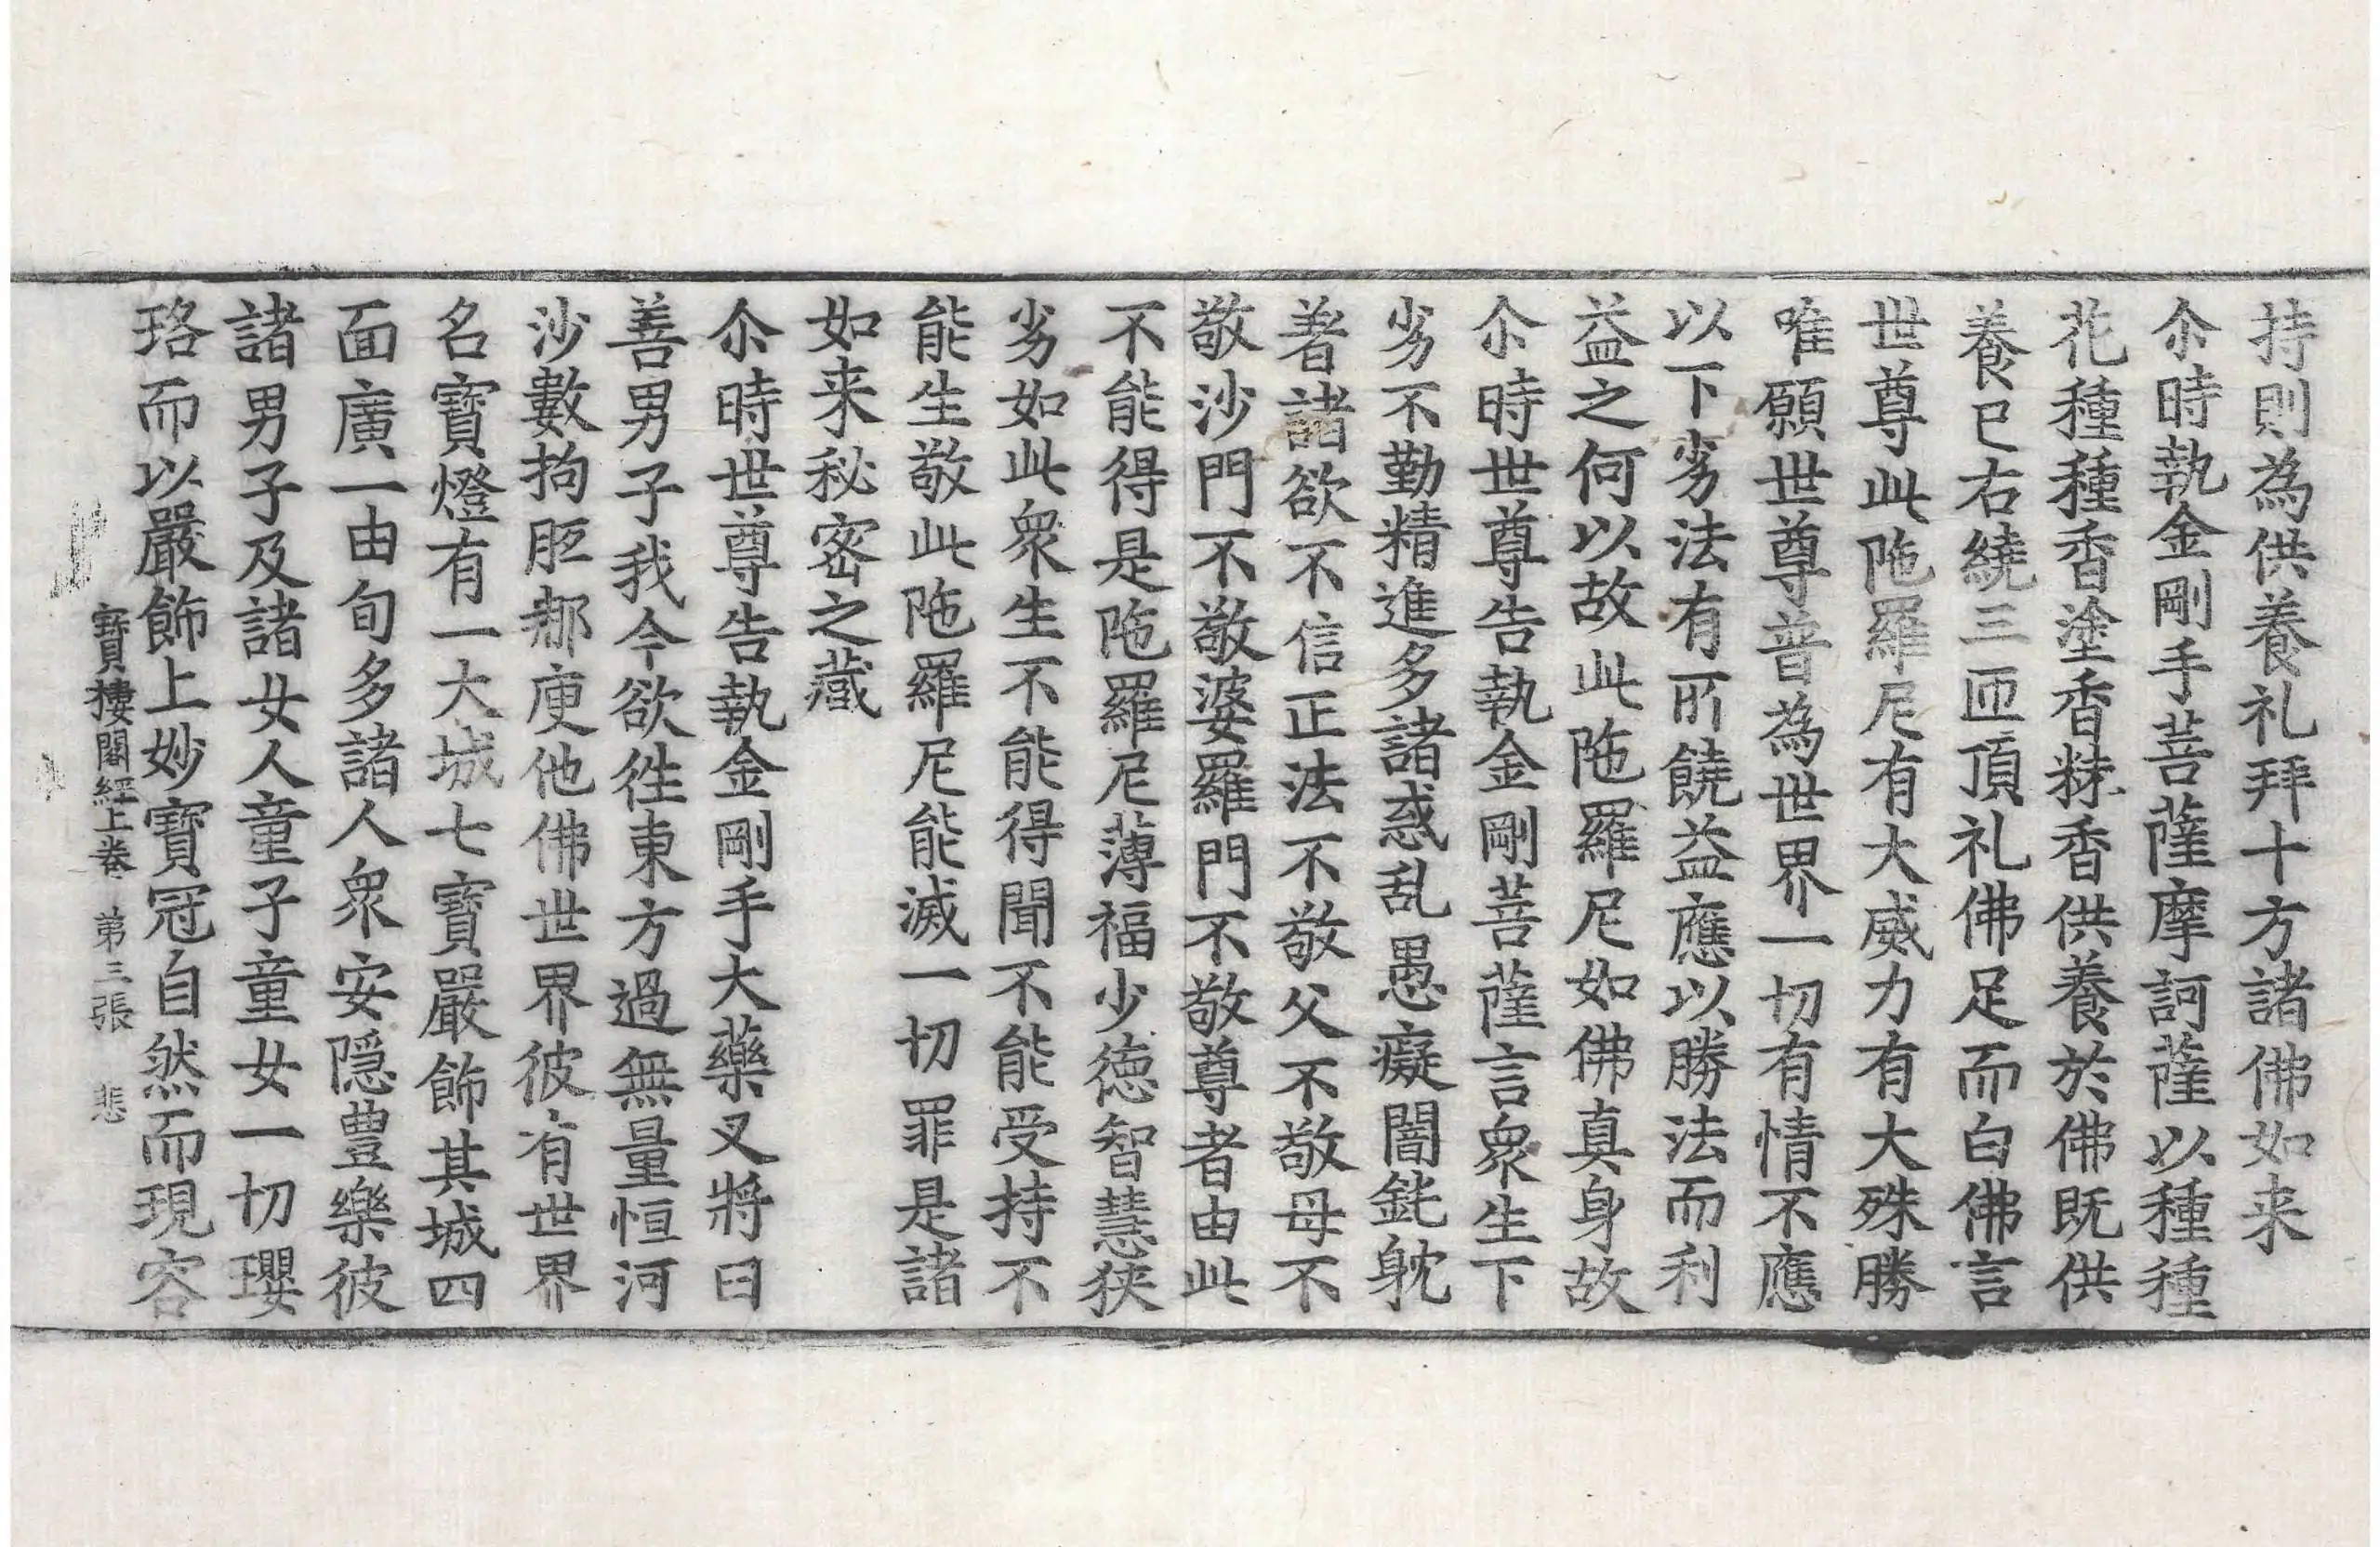 持則為供養礼拜十方諸佛如来
尒時執金剛手菩薩摩訶薩以種種
花種種香塗香粖香供養於佛既供
養已右繞三匝頂礼佛足而白佛言
世尊此陁羅尼有大威力有大殊勝
唯願世尊普為世界一切有情不應
以下劣法有所饒益應以勝法而利
益之何以故此陁羅尼如佛真身故
尒時世尊告執金剛菩薩言衆生下
劣不勤精進多諸惑乱愚癡闇鈍躭
著諸欲不信正法不敬父不敬母不
敬沙門不敬婆羅門不敬尊者由此
不能得是陁羅尼薄福少徳智慧狭
劣如此衆生不能得聞不能受持不
能生敬此陁羅尼能滅一切罪是諸
如来秘密之藏
尒時世尊告執金剛手大藥叉將曰
善男子我今欲徃東方過無量恒河
沙數拘胝那庾他佛世界彼有世界
名寶燈有一大城七寶嚴飾其城四
面廣一由旬多諸人衆安隱豊樂彼
諸男子及諸女人童子童女一切瓔
珞而以嚴飾上妙寶冠自然而現容
寶樓閣經上卷 苐三張 悲